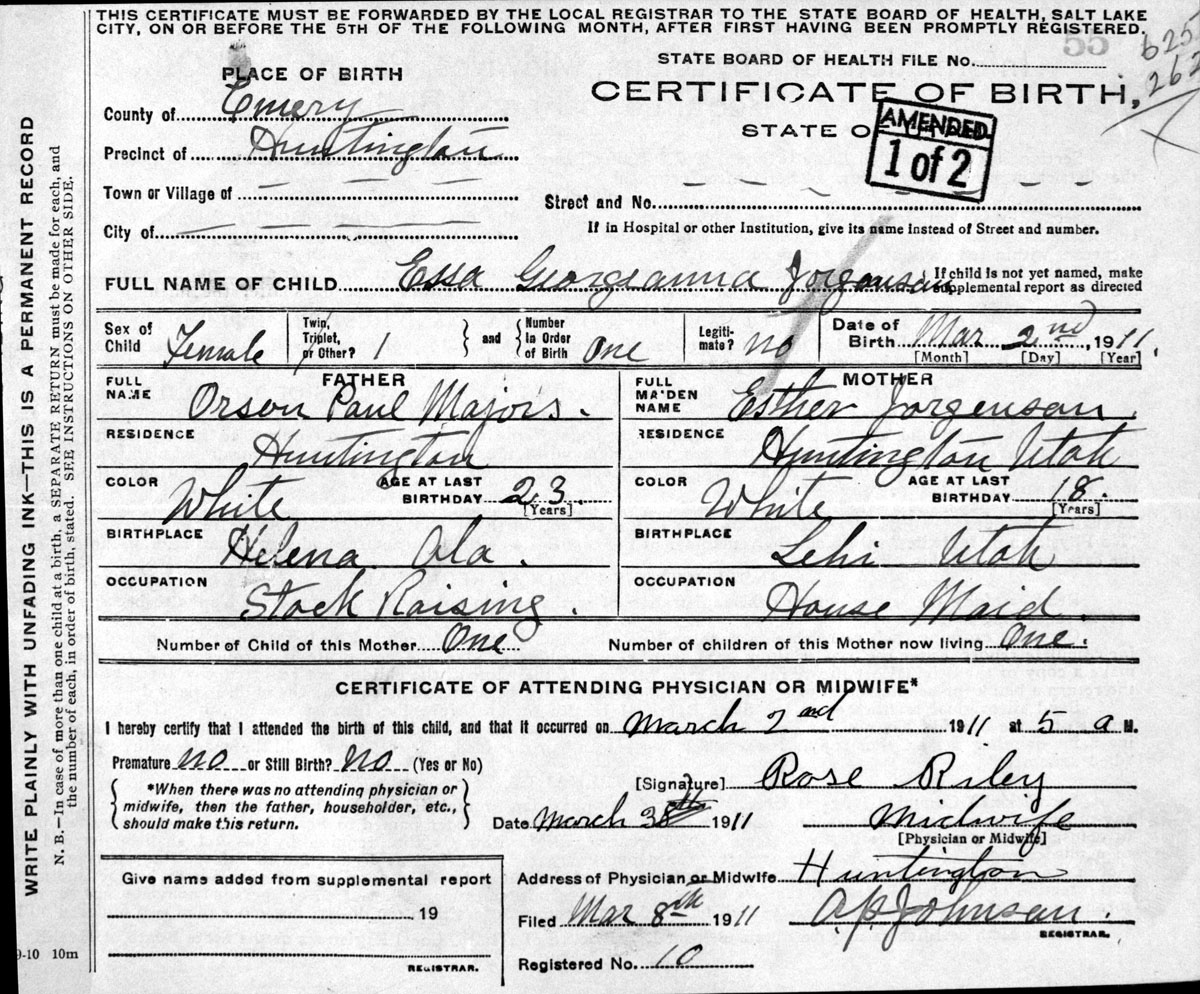 THIS CERTIFICATE MUST BE FORWARDED BY THE LOCAL REGISTRAR TO THE STATE BOARD OF HEALTH, SALT LAKE
CITY, ON OR BEFORE THE 5TH OF THE FOLLOWING MONTH, AFTER FIRST HAVING BEEN PROMPTLY REGISTERED.
55
STATE BOARD OF HEALTH FILE No.
625
262
PLACE OF BIRTH
CERTIFICATE OF BIRTH,
County of Emery
STATE O
AMENDED
1 of 2
Precinct of Huntington
Town or Village of
Street and No.
City of
If in Hospital or other Institution, give its name instead of Street and number.
FULL NAME OF CHILD Essa Georgeanna Jorgensen
If child is not yet named, make
supplemental report as directed
Sex of Child Female
Twin, Triplet, or Other? 1
and
Number In Order of Birth One
Legiti- mate? no
Date of Birth Mar 2nd, 1911.
[Month] [Day] [Year]
FATHER
FULL NAME Orson Paul Majors.
RESIDENCE Huntington
COLOR White
AGE AT LAST BIRTHDAY 23
[Years]
BIRTHPLACE Helena Ala.
OCCUPATION Stock Raising.
MOTHER
FULL MAIDEN NAME Esther Jorgensen.
RESIDENCE Huntington Utah
COLOR White
AGE AT LAST BIRTHDAY 18.
[Years]
BIRTHPLACE Lehi Utah
OCCUPATION House Maid.
Number of Child of this Mother One
Number of children of this Mother now living One.
CERTIFICATE OF ATTENDING PHYSICIAN OR MIDWIFE*
I hereby certify that I attended the birth of this child, and that it occurred on March 2nd 1911 at 5 a M.
Premature no or Still Birth? No (Yes or No)
*When there was no attending physician or
midwife, then the father, householder, etc.,
should make this return.
[Signature] Rose Riley
Date March 1911
Midwife
[Physician or Midwife]
Address of Physician or Midwife Huntington
Give name added from supplemental report
19
REGISTRAR.
Filed Mar 8th 1911
A.P. Johnson.
REGISTRAR.
Registered No. 10
9-10 10m
WRITE PLAINLY WITH UNFADING INK—THIS IS A PERMANENT RECORD
N. B.—In case of more than one child at a birth, a SEPARATE RETURN must be made for each, and
the number of each, in order of birth, stated. SEE INSTRUCTIONS ON OTHER SIDE.